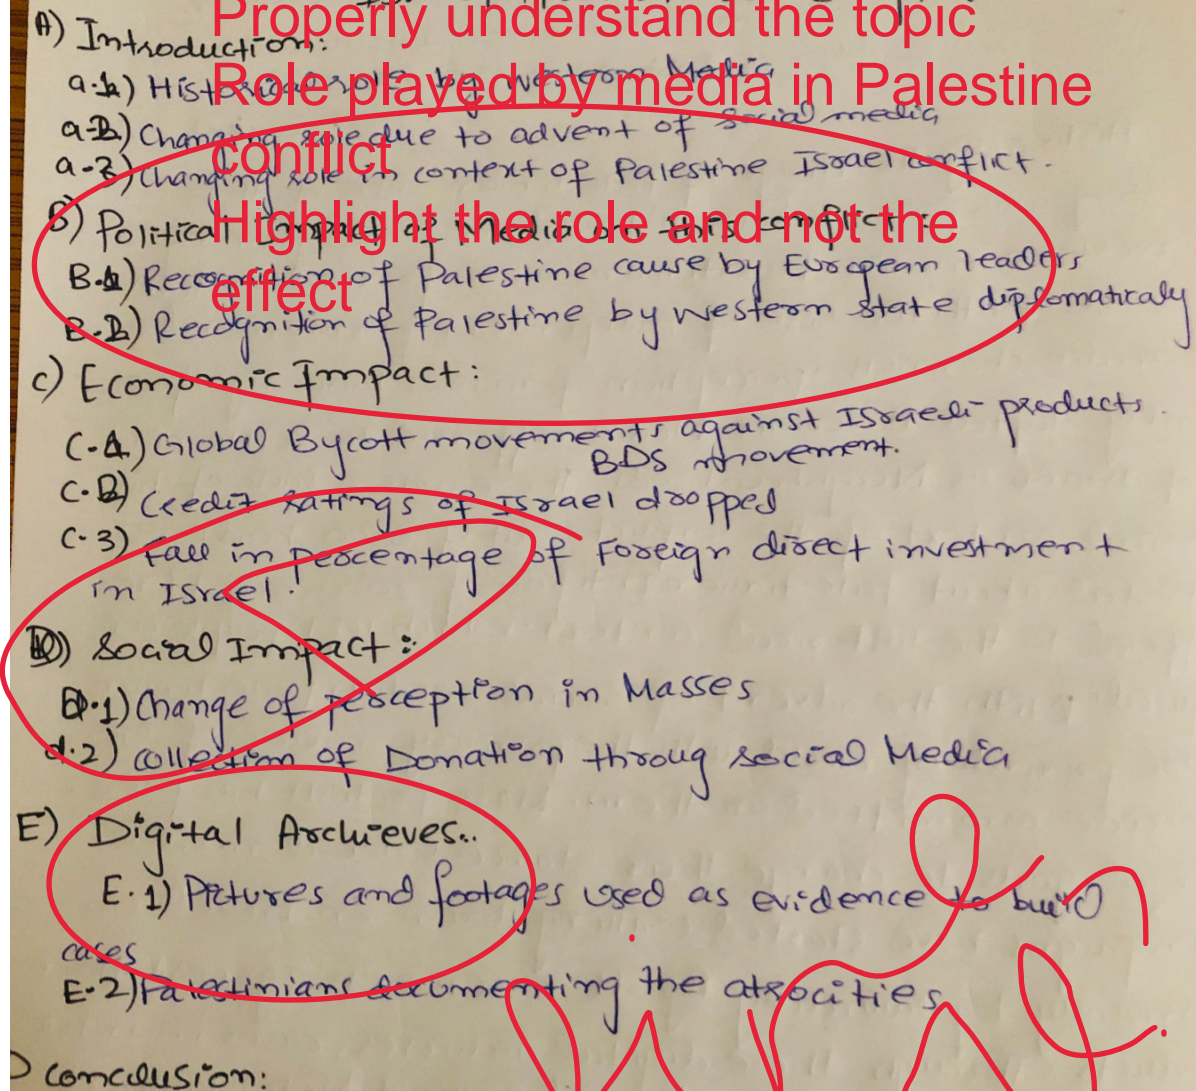 Properly understand the topic
A) Introduction:
Role played by media in Palestine
a.1) Historical role by western Media
a-2) Changing role due to advent of social media
conflict
a-3) Changing role in context of Palestine Israel conflict.
Highlight the role and not the
B) Political Impact of Media on this conflict:
B.1) Recognition of Palestine cause by European leaders
effect
B.2) Recognition of Palestine by western state diplomaticaly
C) Economic Impact:
C.1) Global Bycott movements against Israeli products.
BDS movement.
C.2) Credit ratings of Israel dropped
C.3) Fall in percentage of Foreign direct investment
in Israel.
D) Social Impact:
D.1) Change of perception in Masses
d.2) collection of Donation throug social Media
E) Digital Archieves..
E.1) Pictures and footages used as evidence to build
cases
E.2) Palestinians documenting the atrocities
conclusion: